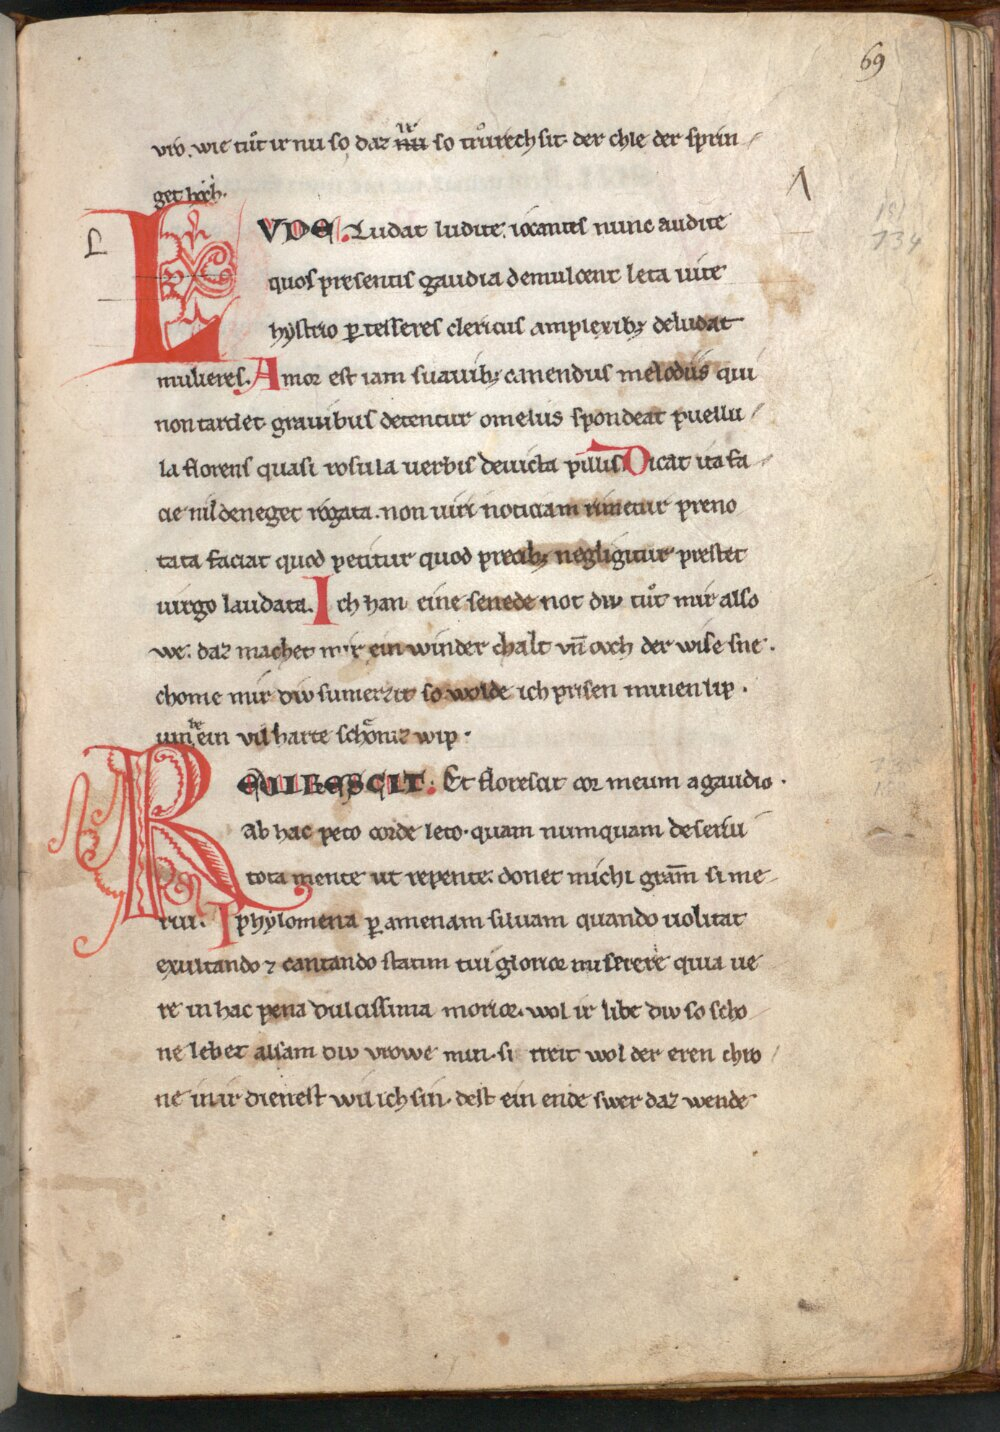 69
vro. wie tuͦt ir nu so daz nu ir so truͦrech sit. der chle der sprin
get hoh.
LVDE. Ludat ludite. iocantes nunc audite
quos presentis gaudia demulcent leta uite
hystrio ꝑ tesseres clericus amplexibꝫ deludat
mulieres. Amor est iam suauibꝫ canendus melodiis qui
non tardet grauibus detentur omelus spondeat puellu
la florens quasi rosula uerbis deuicta puulis Dicat ita fa
cie nil deneget rogata. non uiri noticiam rimetur preno
tata faciat quod petitur quod precibꝫ negligitur prestet
uirgo laudata. Ich han eine senede not div tuͦt mir also
we. daz machet mir ein winder chalt vn̄ ovch der wise sne.
chome mir div sumerzit so wolde ich prisen minen lip.
umbe ein vil harte schoͤniz wip.
REQUIESCIT. Et florescit cor meum a gaudio.
Ab hac peto corde leto. quam numquam deserui
tota mente ut repente. donet michi gram̄ si me
rui. Iphylomena ꝑ amenam siluam quando uolitat
exultando ⁊ cantando statim tui glorior miserere quia ue
re in hac pena dulcissima morior. wol ir libe div so scho
ne lebet alsam div vrowe min. si treit wol der eren chro
ne in ir dienest wil ich sin. dest ein ende swer daz wende